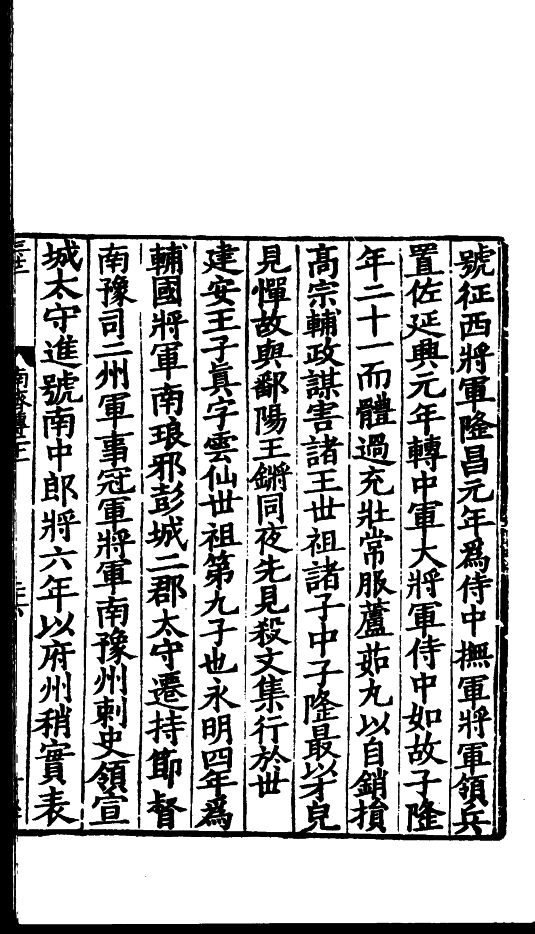 號征西將軍隆昌元年爲侍中撫軍將軍領兵
置佐延興元年轉中軍大將軍侍中如故子隆
年二十一而體過充壯常服蘆茹丸以自銷損
髙宗輔政謀害諸王世祖諸子中子隆最以才皃
見憚故與鄱陽王鏘同夜先見殺文集行於世
建安王子眞字雲仙世祖第九子也永明四年爲
輔國將軍南琅邪彭城二郡太守遷持節督
南豫司二州軍事冠軍將軍南豫州刺史領宣
城太守進號南中郎將六年以府州稍實表